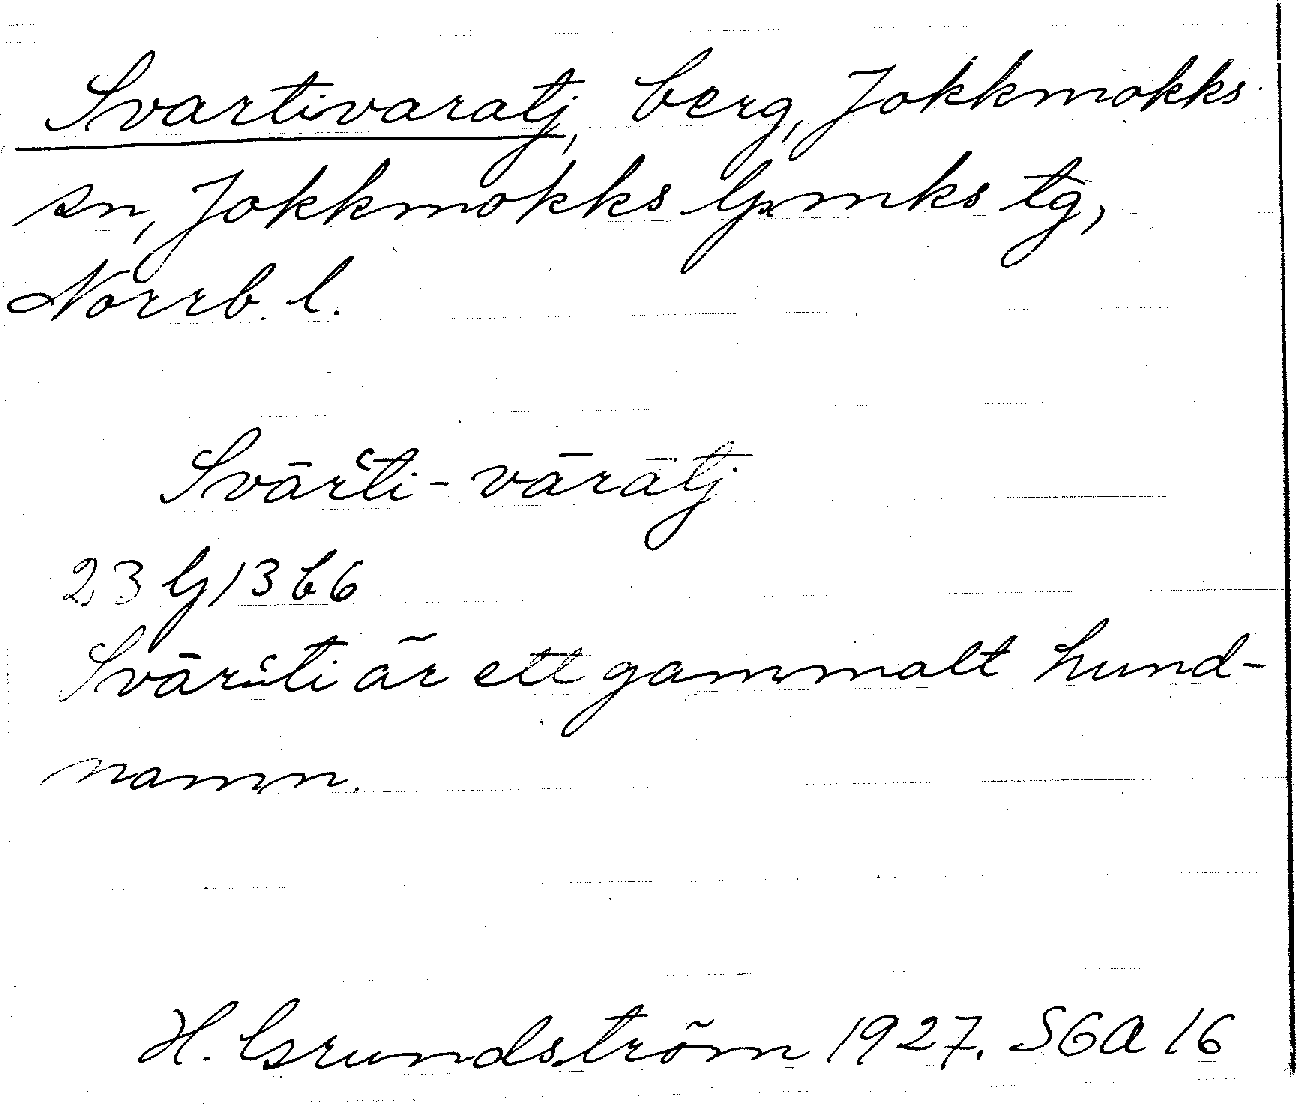 Svartivaratj, berg, Jokkmokks
sn, Jokkmokks lpmks tg,
Norrb. l.
Svārʿti-vāràtj
23 G 13 b 6
Svārʿti är ett gammalt hund-
namn.
H. Grundström 1927. SGA 16